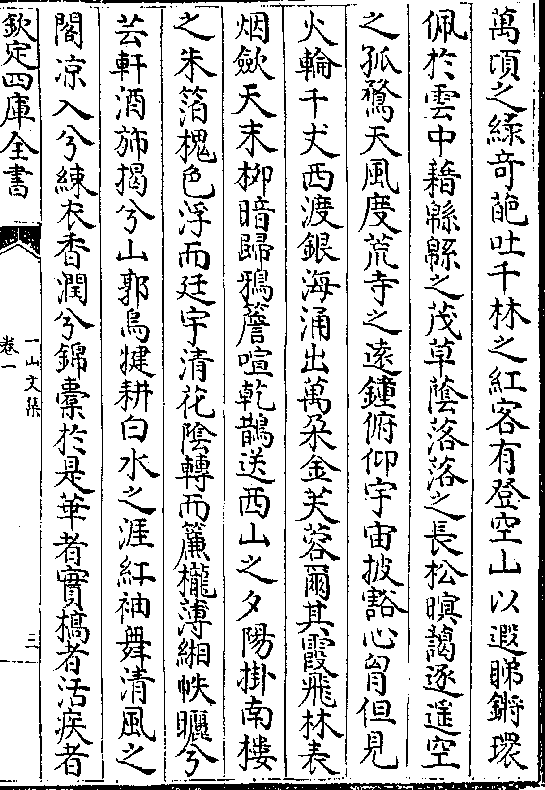 萬頃之緑奇葩吐千林之紅客有登空山以遐睇鏘環
佩於雲中藉緜緜之茂草蔭落落之長松暝靄逐遥空
之孤鶩天風度荒寺之遠鐘俯仰宇宙披豁心胷但見
火輪千丈西渡銀海涌出萬朶金芙蓉爾其霞飛林表
烟歛天末栁暗歸鴉簷喧乾鵲送西山之夕陽掛南樓
之朱箔槐色浮而廷宇清花陰轉而簾櫳薄緗帙曬兮
芸軒酒斾揭兮山郭烏犍耕白水之涯紅袖舞清風之
閣凉入兮練衣香潤兮錦槖於是華者實槁者活疾者
欽定四庫全書
一山文集
卷一
三